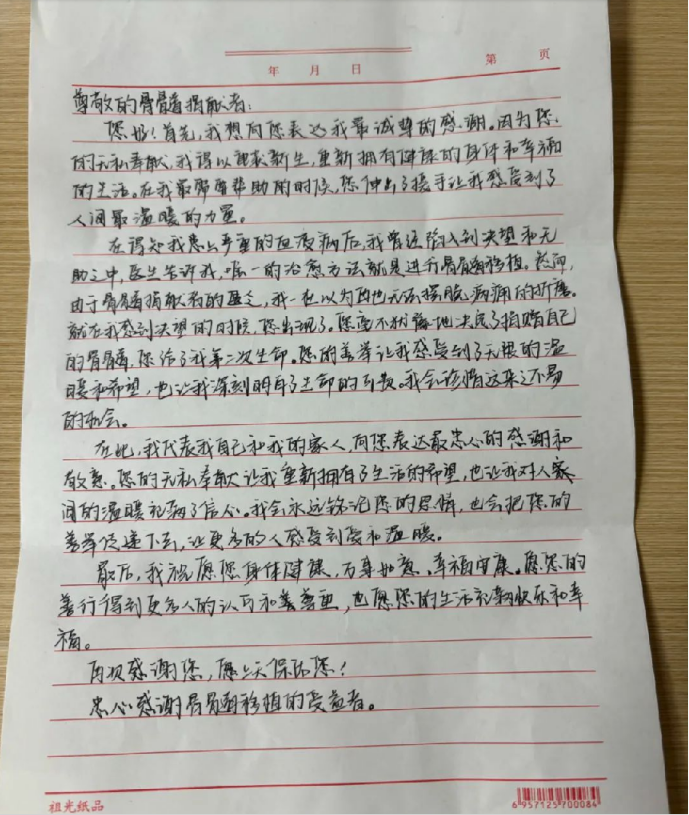 年 月 日
第 页
尊敬的骨髓捐献者:
您好!首先,我想向您表达我最诚挚的感谢。因为您
的无私奉献,我得以重获新生,重新拥有健康的身体和幸福
的生活。在我最需要帮助的时候,您伸出了援手让我感受到了
人间最温暖的力量。
在得知我患上严重的血液病后,我曾经陷入到失望和无
助之中,医生告诉我,唯一的治愈方法就是进行骨髓移植。然而,
由于骨髓捐献者的匮乏,我一在以为再也无法摆脱病痛的折磨。
就在我感到失望的时候,您出现了。您毫不犹豫地决定了捐赠自己
的骨髓,您给了我第二次生命。您的善举让我感受到了无限的温
暖和希望,也让我深刻明白了生命的可贵。我会珍惜这来之不易
的机会。
在此,我代表我自己和我的家人,向您表达最忠心的感谢和
敬意。您的无私奉献让我重新拥有了生活的希望,也让我对人家
间的温暖充满了信心。我会永远铭记您的恩情,也会把您的
善举传递下去,让更多的人感受到爱和温暖。
最后,我祝愿您身体健康,万事如意、幸福安康。愿您的
善行得到更多人的认可和尊重,也愿您的生活充满快乐和幸
福。
再次感谢您,愿上天保佑您!
忠心感谢骨髓移植的受益者。
祖光纸品
6 957125 700084